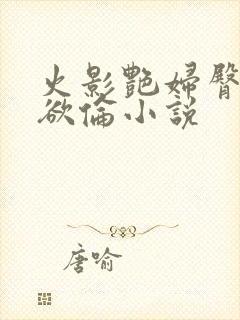 火影艷婦臀
欲倫小説
唐喻